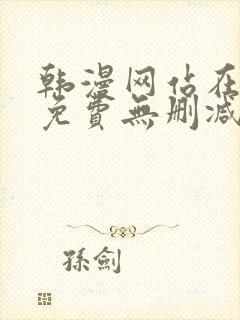 韩漫网站在
免費無删减
孫劍